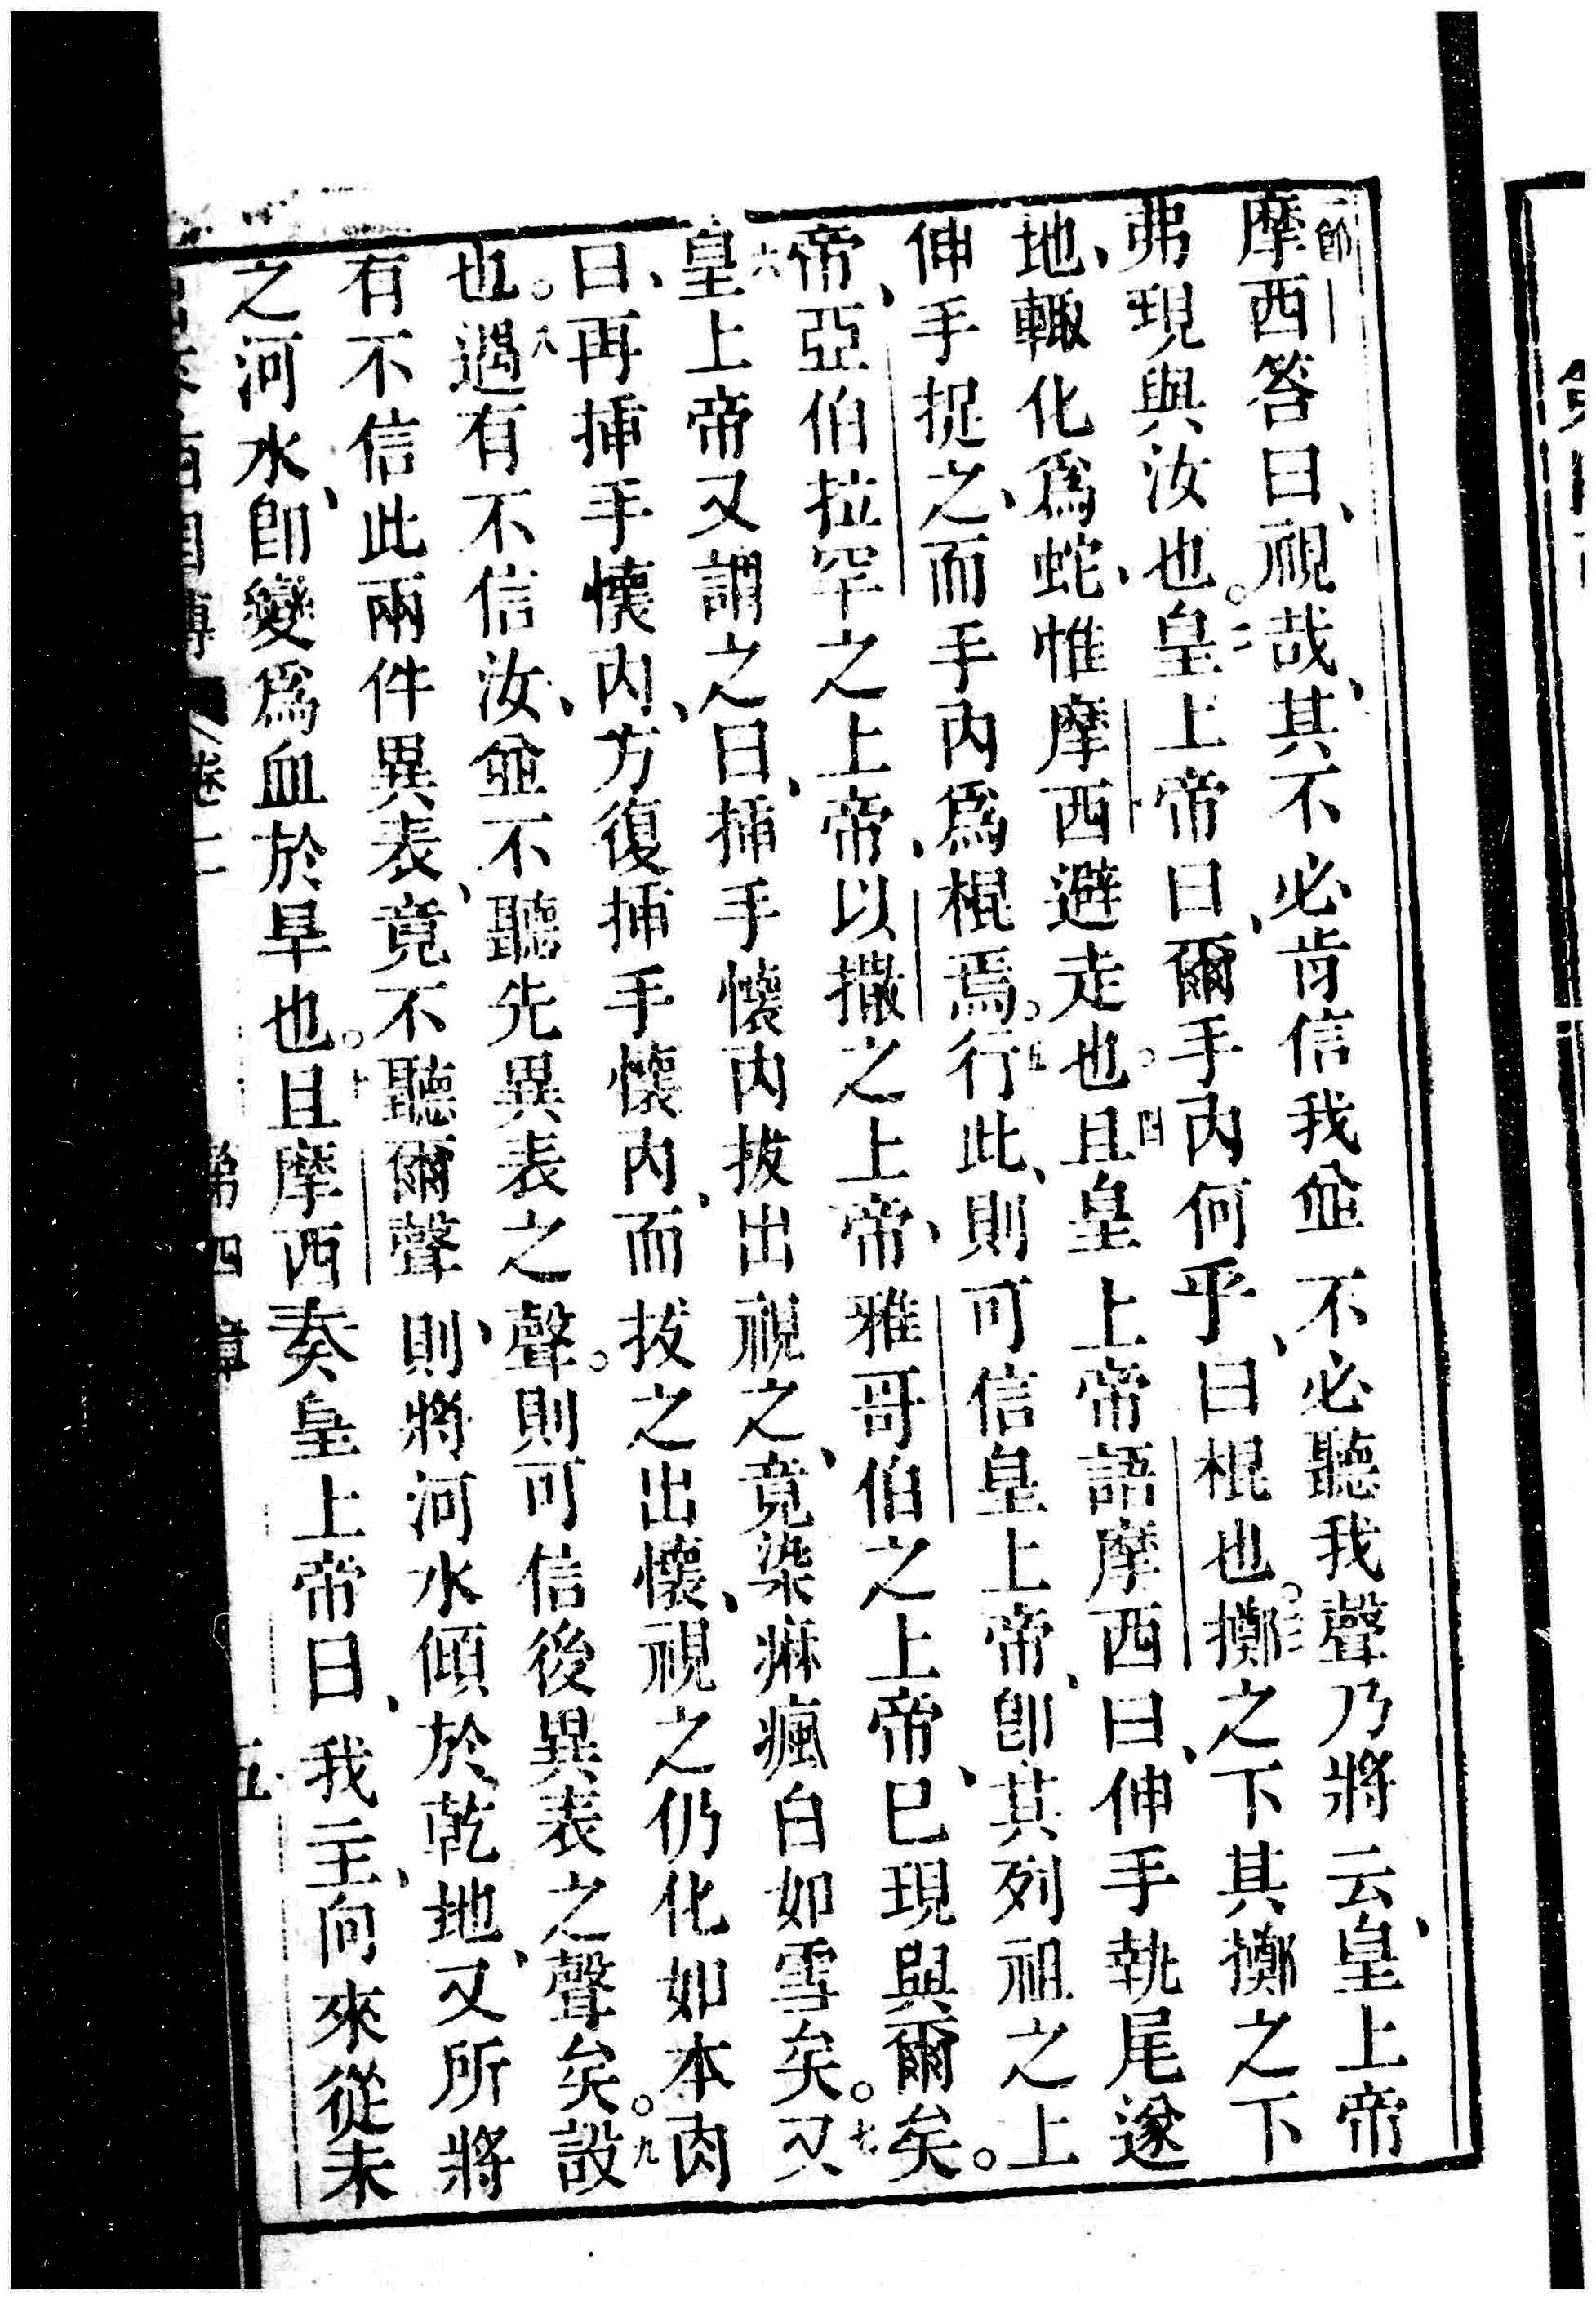 摩西答曰、視哉、其不必肯信我並不必聽我聲乃將云、皇上帝
弗現與汝也。二皇上帝曰、爾手內何乎、曰棍也。三擲之下其擲之下
地、輙化爲蛇、惟摩西避走也。四且皇上帝語摩西曰、伸手執尾遂
伸手捉之、而手內爲棍焉。五行此、則可信皇上帝、卽其列祖之上
帝、亞伯拉罕之上帝、以撒之上帝、雅哥伯之上帝、已現與爾矣。
六皇上帝又謂之曰、揷手懷內拔出視之、竟染痳瘋白如雪矣。七又
曰、再揷手懷內、方復揷手懷內、而拔之出懷、視之仍化如本肉
也。八遇有不信汝、並不聽先異表之聲。則可信後異表之聲矣。九設
有不信此兩件異表、竟不聽爾聲、則將河水傾於乾地、又所將
之河水、卽變爲血於旱也。十且摩西奏皇上帝曰、我主、向來從未
卷二 第四章 五